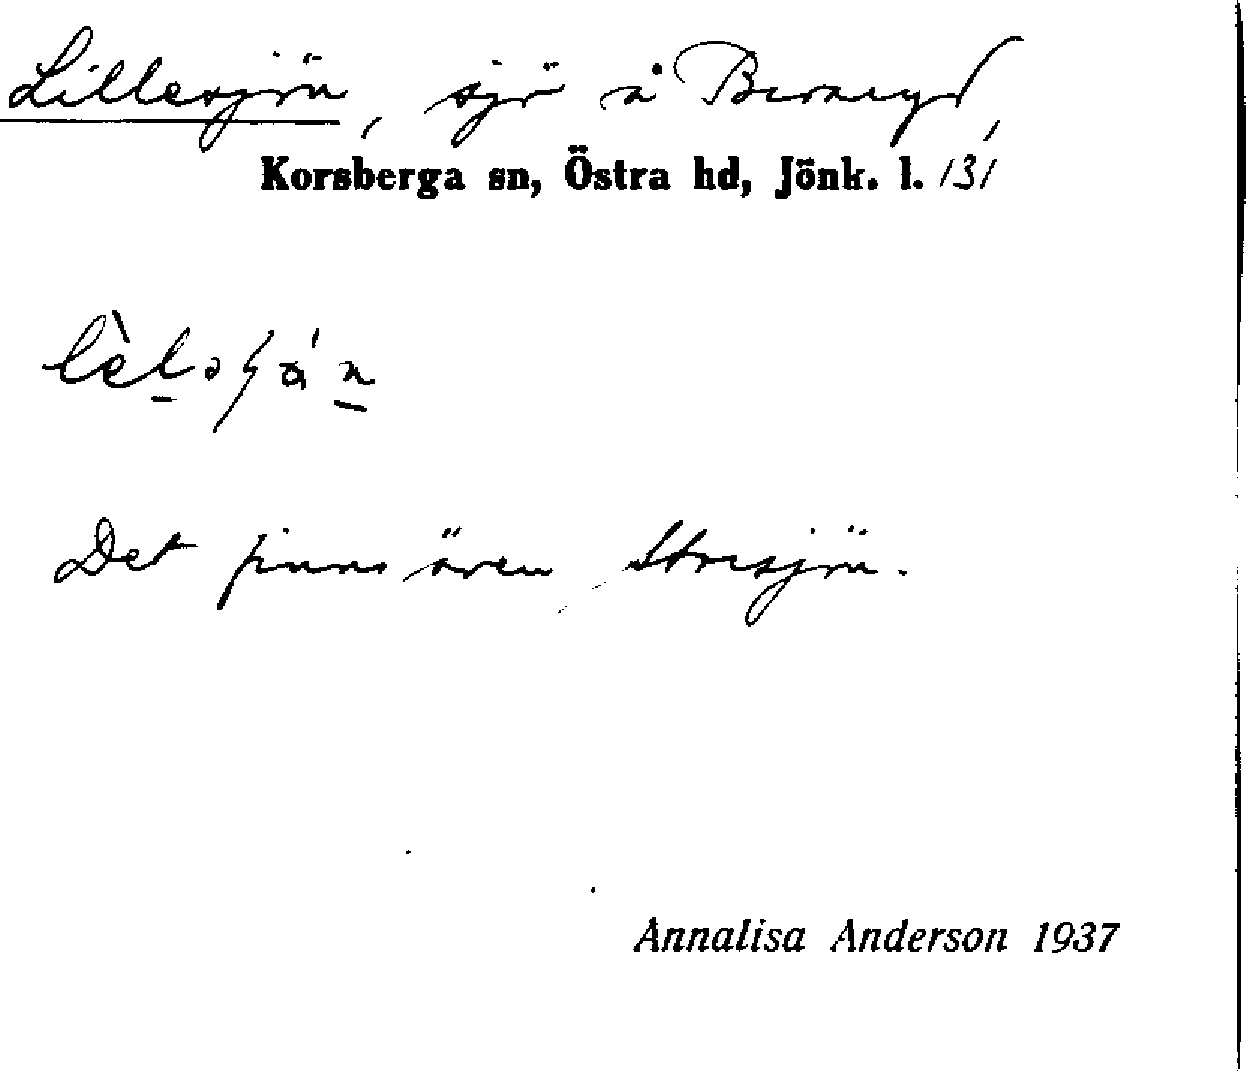 Lillesjön, sjö å
Korsberga sn, Östra hd, Jönk. l. 131
Det finns även Storesjön.
Annalisa Anderson 1937